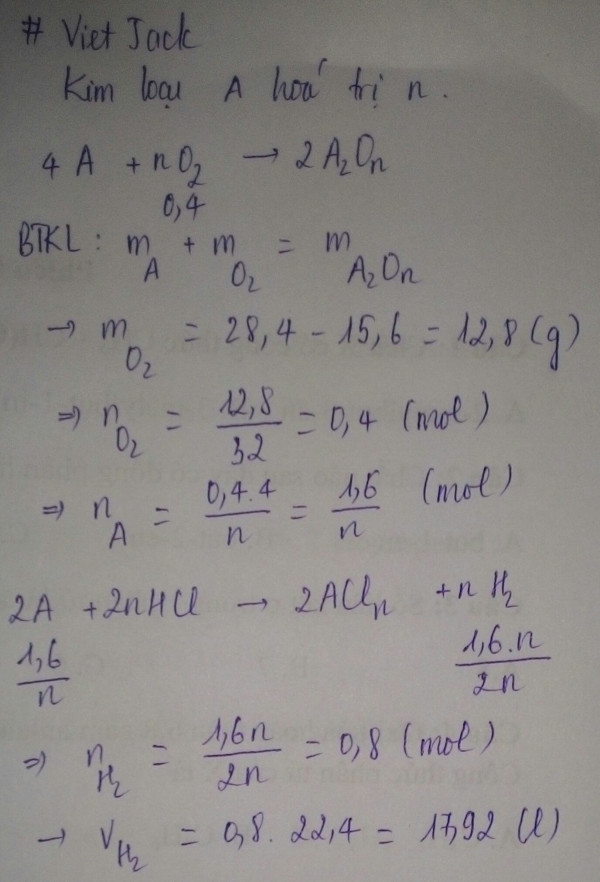 # Viet Jack
Kim loại A hoá trị n.
4 A + n O₂ → 2 A₂Oₙ
0,4
BTKL : m_A + m_O₂ = m_A₂Oₙ
→ m_O₂ = 28,4 - 15,6 = 12,8 (g)
⇒ n_O₂ = 12,8/32 = 0,4 (mol)
⇒ n_A = 0,4.4/n = 1,6/n (mol)
2A + 2nHCl → 2AClₙ + n H₂
1,6/n 1,6.n/2n
⇒ n_H₂ = 1,6n/2n = 0,8 (mol)
→ V_H₂ = 0,8. 22,4 = 17,92 (l)